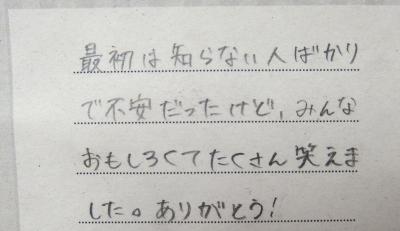 最初は知らない人ばかり
で不安だったけど、みんな
おもしろくてたくさん笑えま
した。ありがとう!